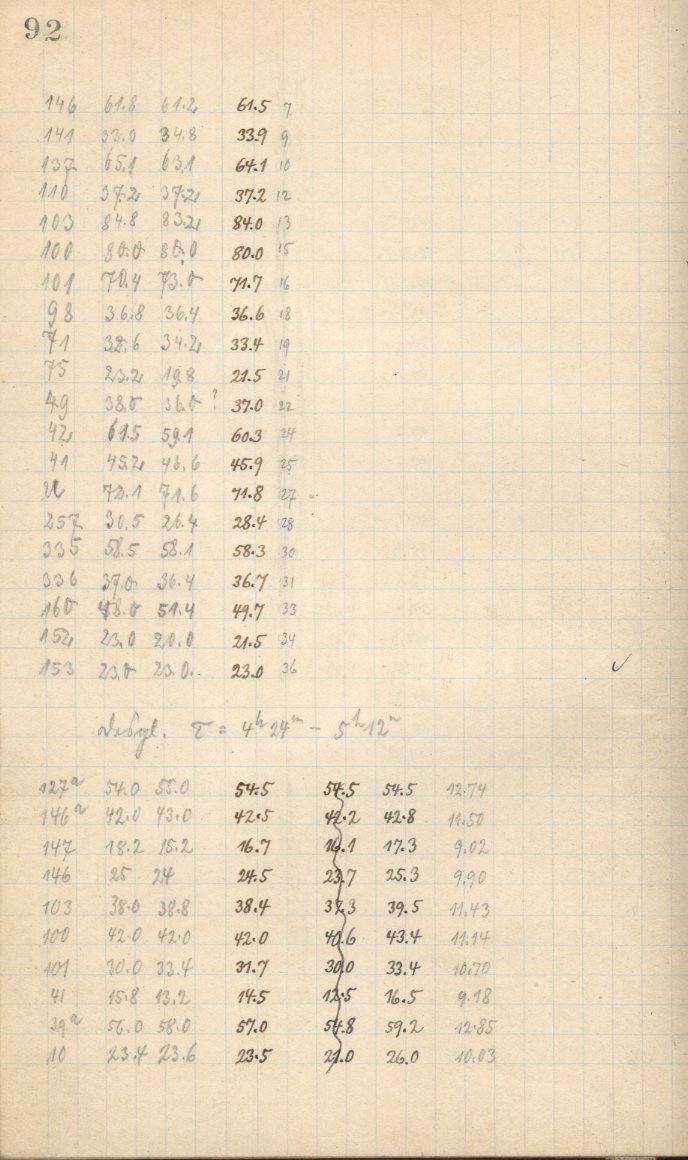 92
146 61.8 61.2 61.5 7
141 33.0 34.8 33.9 9
137 65.1 63.1 64.1 10
110 37.2 37.2 37.2 12
103 84.8 83.2 84.0 13
100 80.0 80.0 80.0 15
101 70.4 73.0 71.7 16
98 36.8 36.4 36.6 18
71 32.6 34.2 33.4 19
75 23.2 19.8 21.5 21
49 38.0 36.0 ? 37.0 22
42 61.5 59.1 60.3 24
41 45.2 46.6 45.9 25
72.1 71.6 71.8 27
257 30.5 26.4 28.4 28
335 58.5 58.1 58.3 30
336 37.0 36.4 36.7 31
160 48.0 51.4 49.7 33
152 23.0 20.0 21.5 34
153 23.0 23.0. 23.0 36
✓
τ = 4h 24m – 5h 12m
127a 54.0 55.0 54.5 54.5 54.5 12.74
146a 42.0 43.0 42.5 42.2 42.8 11.50
147 18.2 15.2 16.7 16.1 17.3 9.02
146 25 24 24.5 23.7 25.3 9.90
103 38.0 38.8 38.4 37.3 39.5 11.43
100 42.0 42.0 42.0 40.6 43.4 11.14
101 30.0 33.4 31.7 30.0 33.4 10.70
41 15.8 13.2 14.5 12.5 16.5 9.18
39a 56.0 58.0 57.0 54.8 59.2 12.85
10 23.4 23.6 23.5 21.0 26.0 10.03